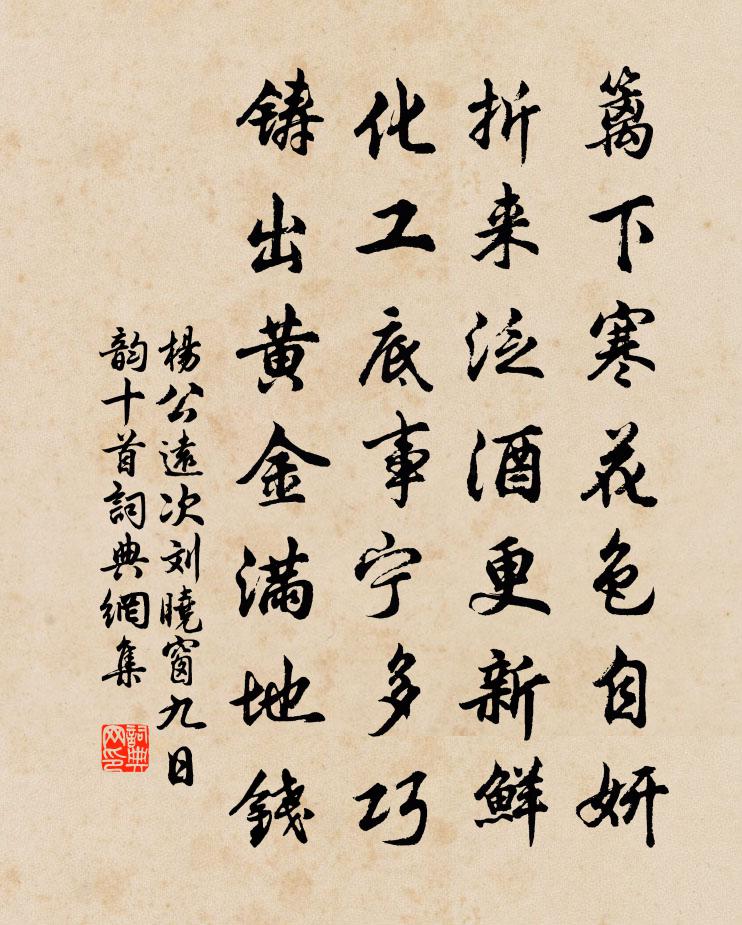 篱下寒花色自妍
折来泛酒更新鮮
化工底事宁多巧
铸出黄金满地钱
楊公遠次刘曉窗九日
韵十首詞典網集
詞典网印